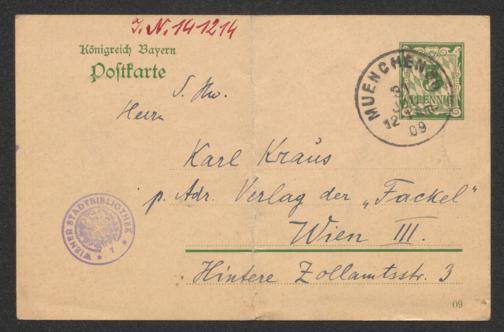 I. N. 141214
Königreich Bayern
Postkarte
S. Hw.
Herrn
Karl Kraus
p. Adr. Verlag der „Fackel"
Wien III.
Hintere Zollamtsstr. 3
MUENCHEN
12
09
PFENNIG
WIENER STADTBIBLIOTHEK
09